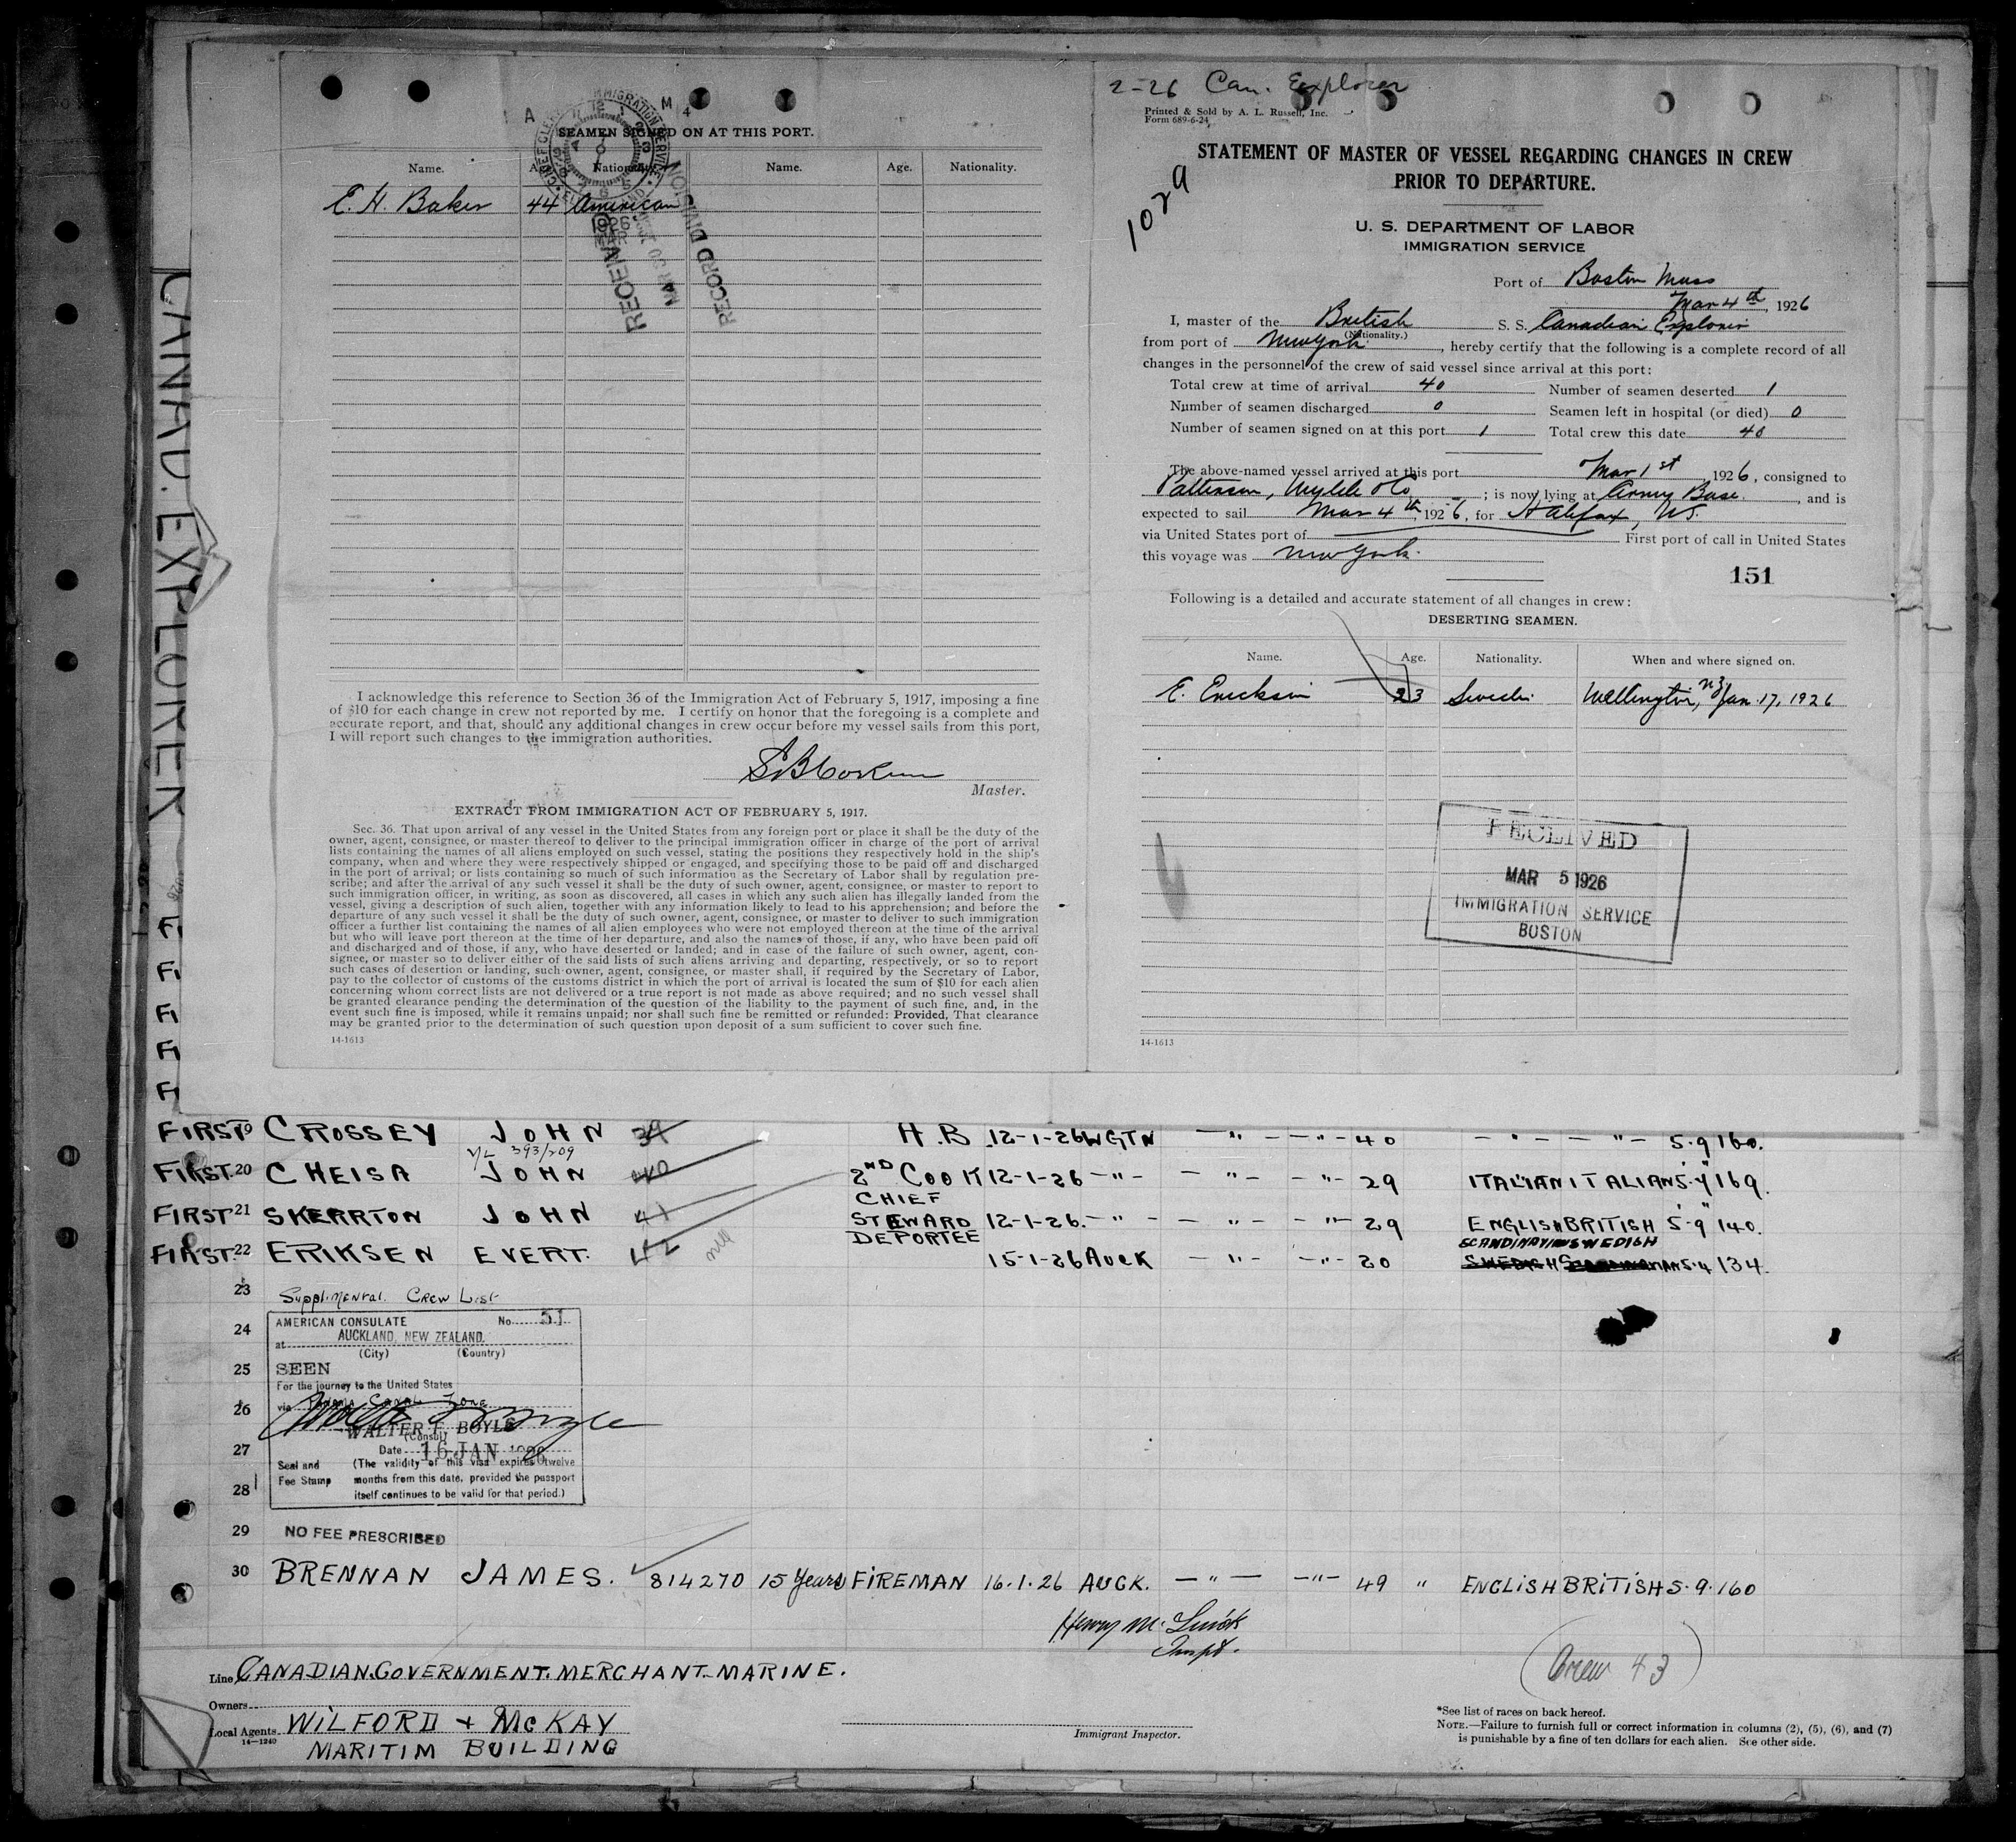 CANAD. EXPLORER
SEAMEN SIGNED ON AT THIS PORT.
Name. Nationality. Name. Age. Nationality.
E. H. Baker 44 American
RECEIVED
MAR 30 1926
RECORD DIVISION
I acknowledge this reference to Section 36 of the Immigration Act of February 5, 1917, imposing a fine
of $10 for each change in crew not reported by me. I certify on honor that the foregoing is a complete and
accurate report, and that, should any additional changes in crew occur before my vessel sails from this port,
I will report such changes to the immigration authorities.
Master.
EXTRACT FROM IMMIGRATION ACT OF FEBRUARY 5, 1917.
Sec. 36. That upon arrival of any vessel in the United States from any foreign port or place it shall be the duty of the
owner, agent, consignee, or master thereof to deliver to the principal immigration officer in charge of the port of arrival
lists containing the names of all aliens employed on such vessel, stating the positions they respectively hold in the ship's
company, when and where they were respectively shipped or engaged, and specifying those to be paid off and discharged
in the port of arrival; or lists containing so much of such information as the Secretary of Labor shall by regulation pre-
scribe; and after the arrival of any such vessel it shall be the duty of such owner, agent, consignee, or master to report to
such immigration officer, in writing, as soon as discovered, all cases in which any such alien has illegally landed from the
vessel, giving a description of such alien, together with any information likely to lead to his apprehension; and before the
departure of any such vessel it shall be the duty of such owner, agent, consignee, or master to deliver to such immigration
officer a further list containing the names of all alien employees who were not employed thereon at the time of the arrival
but who will leave port thereon at the time of her departure, and also the names of those, if any, who have been paid off
and discharged and of those, if any, who have deserted or landed; and in case of the failure of such owner, agent, con-
signee, or master so to deliver either of the said lists of such aliens arriving and departing, respectively, or so to report
such cases of desertion or landing, such owner, agent, consignee, or master shall, if required by the Secretary of Labor,
pay to the collector of customs of the customs district in which the port of arrival is located the sum of $10 for each alien
concerning whom correct lists are not delivered or a true report is not made as above required; and no such vessel shall
be granted clearance pending the determination of the question of the liability to the payment of such fine, and, in the
event such fine is imposed, while it remains unpaid; nor shall such fine be remitted or refunded: Provided, That clearance
may be granted prior to the determination of such question upon deposit of a sum sufficient to cover such fine.
14-1613
2-26 Can. Explorer
Printed & Sold by A. L. Russell, Inc.
Form 689-6-24
1029
STATEMENT OF MASTER OF VESSEL REGARDING CHANGES IN CREW
PRIOR TO DEPARTURE.
U. S. DEPARTMENT OF LABOR
IMMIGRATION SERVICE
Port of Boston Mass
Mar 4th, 1926
I, master of the British S. S. Canadian Explorer
(Nationality.)
from port of New York, hereby certify that the following is a complete record of all
changes in the personnel of the crew of said vessel since arrival at this port:
Total crew at time of arrival 40 Number of seamen deserted 1
Number of seamen discharged 0 Seamen left in hospital (or died) 0
Number of seamen signed on at this port 1 Total crew this date 40
The above-named vessel arrived at this port Mar 1st, 1926, consigned to
Patterson, Wylde & Co; is now lying at Army Base, and is
expected to sail Mar 4th, 1926, for Halifax, NS.
via United States port of First port of call in United States
this voyage was New York.
151
Following is a detailed and accurate statement of all changes in crew:
DESERTING SEAMEN.
Name. Age. Nationality. When and where signed on.
E. Erickson 23 Swedi. Wellington, NZ Jan. 17, 1926
RECEIVED
MAR 5 1926
IMMIGRATION SERVICE
BOSTON
14-1613
FIRST CROSSEY JOHN 39 H.B 12-1-26 WGTN -"- -"- 40 -"- -"- 5.9 160.
393/209
FIRST. 20 CHEISA JOHN 40 2ND COOK 12-1-26 -"- -"- -"- 29 ITALIAN ITALIAN 5.9 169.
FIRST 21 SKERRTON JOHN 41 CHIEF STEWARD 12-1-26. -"- -"- -"- 29 ENGLISH BRITISH 5.9 140.
FIRST. 22 ERIKSEN EVERT. 42 DEPORTEE 15-1-26 AUCK -"- -"- 20 SCANDINAVIAN SWEDISH 5.4 134.
23 Supplimental Crew List
24 AMERICAN CONSULATE No. 51
at AUCKLAND, NEW ZEALAND.
(City) (Country)
25 SEEN
For the journey to the United States
26 via Panama Canal Zone
WALTER F. BOYLE
(Consul)
27 Date 16 JAN 1926
Seal and Fee Stamp (The validity of this visa expires twelve
28 months from this date, provided the passport
itself continues to be valid for that period.)
29 NO FEE PRESCRIBED
30 BRENNAN JAMES. 814270 15 Years FIREMAN 16.1.26 AUCK. -"- -"- 49 " ENGLISH BRITISH 5.9.160
Inspt.
Line CANADIAN GOVERNMENT MERCHANT MARINE.
Crew 43
Owners
Local Agents WILFORD + McKAY
14-1240
MARITIM BUILDING
Immigrant Inspector.
*See list of races on back hereof.
NOTE.—Failure to furnish full or correct information in columns (2), (5), (6), and (7)
is punishable by a fine of ten dollars for each alien. See other side.